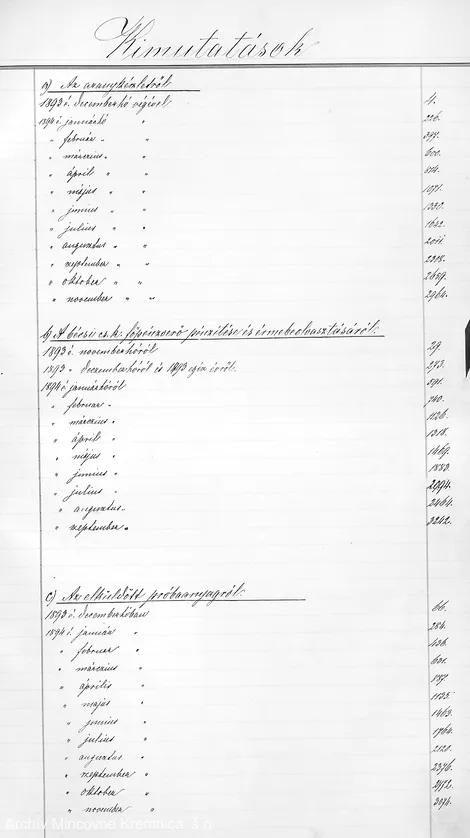 Kimutatások
a) Az aranykészletről
1893 é. deczemberhó végével 4.
1894 é. januárhó " 226.
" február " " 397.
" márczius " " 600.
" április " " 814.
" május " " 1071.
" junius " " 1330.
" julius " " 1642.
" augusztus " " 2011.
" szeptember " " 2318.
" oktober " " 2659.
" november " " 2964.
b) A bécsi cs. k. főpénzverő pénzélése és érmebeolvasztásáról:
1893 é. novemberhóról 29.
1893 " deczemberhóról és 1893 egész évről. 273.
1894 é. januárhóról 591.
" februar " 740.
" márczius " 1126.
" április " 1318.
" május " 1469.
" junius " 1883.
" julius " 2094.
" augusztus " 2464.
" szeptember " 3242.
c) Az elküldött próbaanyagról:
1893 é. deczemberhóban 66.
1894 é. január " 284.
" februar " 436.
" márczius " 631.
" április " 837.
" május " 1135.
" junius " 1463.
" julius " 1764.
" augusztus " 2121.
" szeptember " 2376.
" oktober " 2772.
" november " 3074.
Archív Mincovne Kremnica š.p.